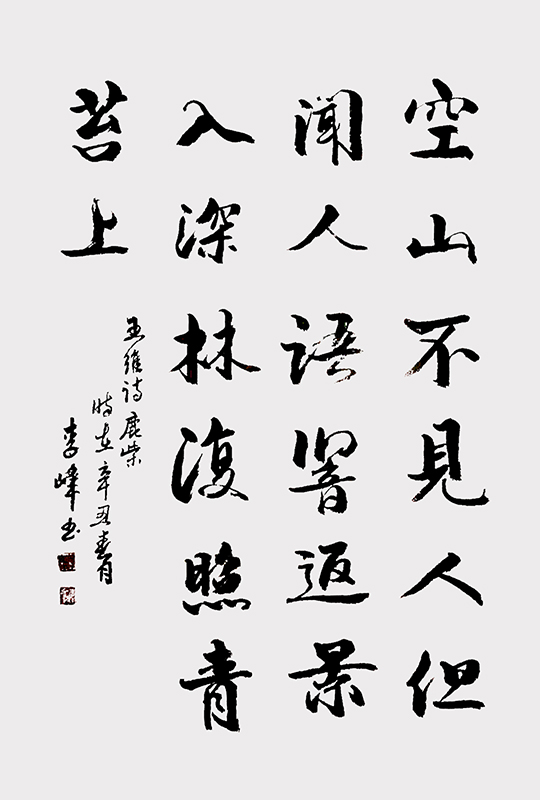 空山不見人但
聞人語響返景
入深林復照青
苔上
王維詩鹿柴
時在辛丑春月
李峰书